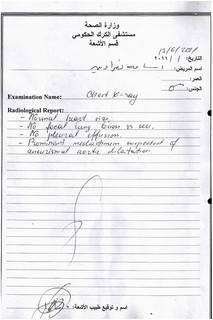 وزارة الصحة
مستشفى الكرك الحكومي
قسم الأشعة
التاريخ: / /٢٠١١
اسم المريض:
العمر:
الجنس:
Examination Name: Chest X-ray
Radiological Report:
- Normal heart size.
- No focal lung lesion is seen.
- No pleural effusion.
- Prominent mediastinum suspected of
aneurismal aorta dilatation.
اسم و توقيع طبيب الأشعة: